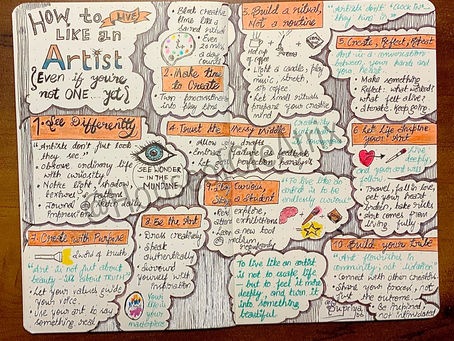 How to
LIVE
LIKE an
Artist
{Even if you're
not ONE... yet}
1. See Differently
"Artists don't just look
they see."
Observe ordinary life
with curiosity
Notice light, shadow,
textures,
Journal
SEE WONDER
IN THE
MUNDANE
Block creative
time like a
sacred ritual
Even
20 mins
a day
counts
2. Make time
to Create
Turn procrastination
into play time
3. Build a ritual,
Not a routine
Light a candle, play
music, stretch,
sip coffee
Let small rituals
prepare your creative
mind
4. Trust the Messy Middle
Allow
drafts
feedback
Let
paralysis
Creativity
5. Create, Reflect, Repeat
Art is a conversation
between your hands and
your heart.
Make something
Reflect: what worked?
what felt alive?
keep going
6. Let Life Inspire
your Art
Live
deeply,
and your
art will
Travel, fall in love,
get your heart
broken, take risks
art comes from
living fully
7. Create with Purpose
"Art is not just about
beauty - it's about TRUTH"
Let your values guide
your voice.
Use your art to say
something real
8. Be the Art
Dress creatively
Speak
authentically
Surround
yourself with
inspiration
Your
life is
your
masterpiece
9. Stay Curious,
Stay a Student
explore,
exhibitions
Learn
a new tool
medium
regularly
"To live like an
artist is
to be endlessly
curious"
To live like an artist
is not to escape life
- but to feel it more
deeply, and turn it
into something
beautiful
10. Build your tribe
Art flourishes in
community, not isolation
Connect with other creatives
Share your process, not
just the outcome.
Be inspired,
not intimidated
Supriya